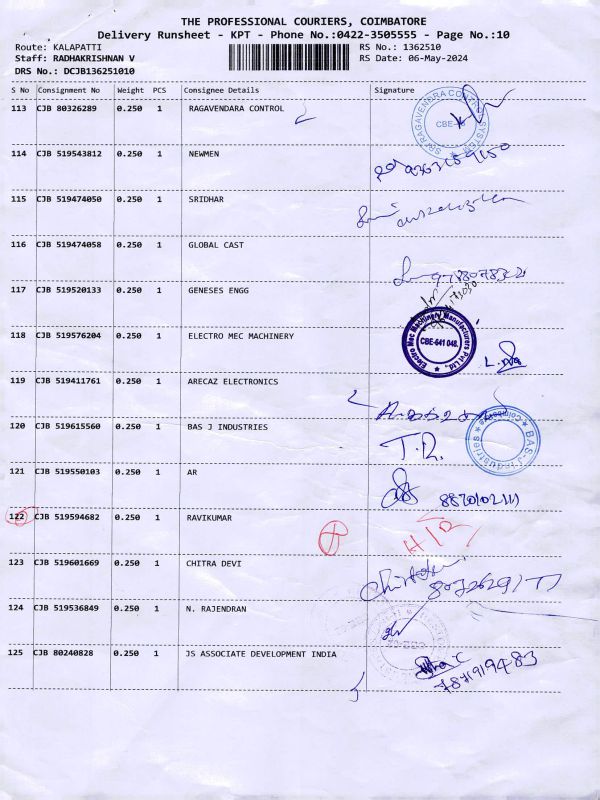 THE PROFESSIONAL COURIERS, COIMBATORE
Delivery Runsheet - KPT - Phone No.:0422-3505555 - Page No.:10
Route: KALAPATTI RS No.: 1362510
Staff: RADHAKRISHNAN V RS Date: 06-May-2024
DRS No.: DCJB136251010
S No Consignment No Weight PCS Consignee Details Signature
113 CJB 80326289 0.250 1 RAGAVENDARA CONTROL
SRI RAGAVENDRA CONTROL SYSTEM
114 CJB 519543812 0.250 1 NEWMEN
115 CJB 519474050 0.250 1 SRIDHAR
116 CJB 519474058 0.250 1 GLOBAL CAST
117 CJB 519520133 0.250 1 GENESES ENGG
118 CJB 519576204 0.250 1 ELECTRO MEC MACHINERY
Electro Mec Machinery Manufacturers Pvt Ltd.,
CBE-641 048.
119 CJB 519411761 0.250 1 ARECAZ ELECTRONICS
120 CJB 519615560 0.250 1 BAS J INDUSTRIES
T.R.
BAS-J-Industries Coimbatore
121 CJB 519550103 0.250 1 AR
122 CJB 519594682 0.250 1 RAVIKUMAR
123 CJB 519601669 0.250 1 CHITRA DEVI
124 CJB 519536849 0.250 1 N. RAJENDRAN
125 CJB 80240828 0.250 1 JS ASSOCIATE DEVELOPMENT INDIA